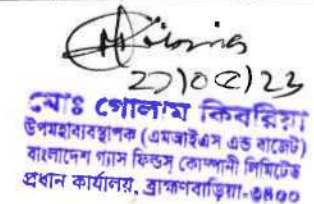 27/02/23
মোঃ গোলাম কিবরিয়া
উপমহাব্যবস্থাপক (এমআইএস এন্ড বাজেট)
বাংলাদেশ গ্যাস ফিল্ডস্ কোম্পানী লিমিটেড
প্রধান কার্যালয়, ব্রাহ্মণবাড়িয়া-৩৪০০